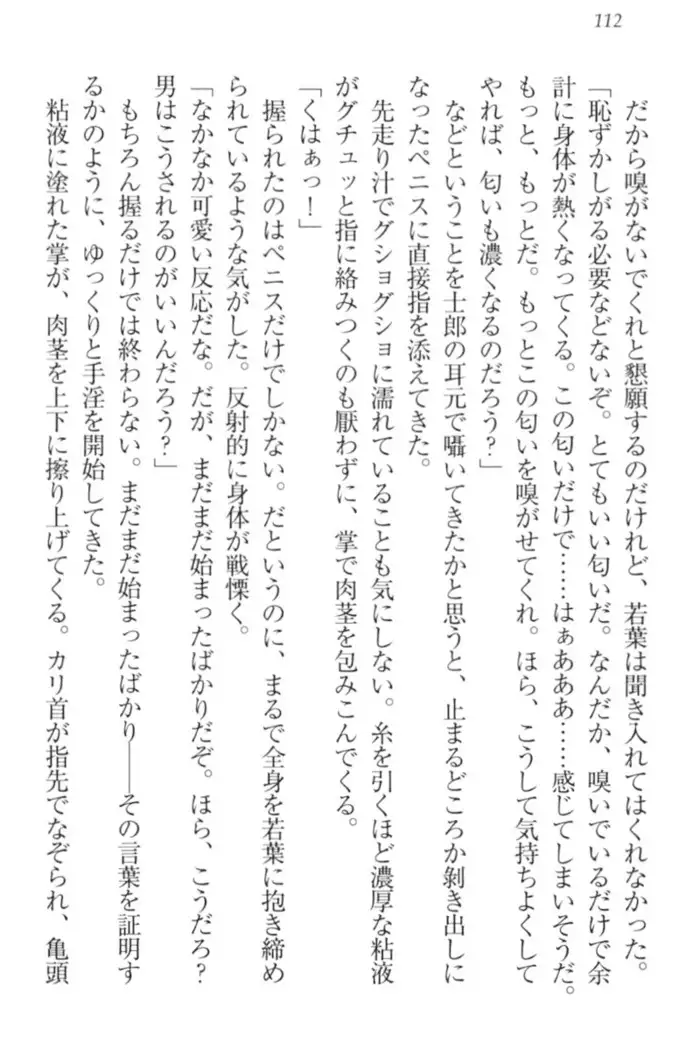 112
だから嗅がないでくれと懇願するのだけれど、若葉は聞き入れてはくれなかった。
「恥ずかしがる必要などないぞ。とてもいい匂いだ。なんだか、嗅いでいるだけで余
計に身体が熱くなってくる。この匂いだけで……はぁあああ……感じてしまいそうだ。
もっと、もっとだ。もっとこの匂いを嗅がせてくれ。ほら、こうして気持ちよくして
やれば、匂いも濃くなるのだろう？」
などということを士郎の耳元で囁いてきたかと思うと、止まるどころか剝き出しに
なったペニスに直接指を添えてきた。
先走り汁でグショグショに濡れていることも気にしない。糸を引くほど濃厚な粘液
がグチュッと指に絡みつくのも厭わずに、掌で肉茎を包みこんでくる。
「くはぁっ！」
握られたのはペニスだけでしかない。だというのに、まるで全身を若葉に抱き締め
られているような気がした。反射的に身体が戦慄く。
「なかなか可愛い反応だな。だが、まだまだ始まったばかりだぞ。ほら、こうだろ？
男はこうされるのがいいんだろう？」
もちろん握るだけでは終わらない。まだまだ始まったばかり――その言葉を証明す
るかのように、ゆっくりと手淫を開始してきた。
粘液に塗れた掌が、肉茎を上下に擦り上げてくる。カリ首が指先でなぞられ、亀頭